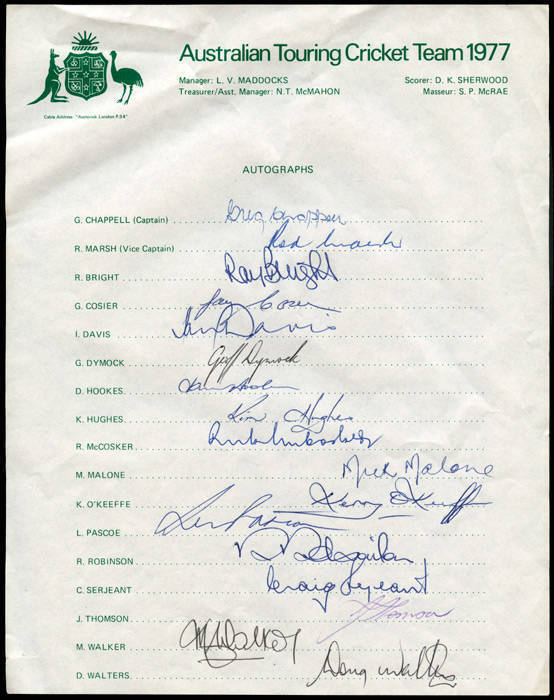 Australian Touring Cricket Team 1977
Manager: L. V. MADDOCKS Scorer: D. K. SHERWOOD
Treasurer/Asst. Manager: N.T. McMAHON Masseur: S. P. McRAE
Cable Address "Austcrick London P.S.4"
AUTOGRAPHS
G. CHAPPELL (Captain) Greg Chappell
R. MARSH (Vice Captain) Rod Marsh
R. BRIGHT Ray Bright
G. COSIER Gary Cosier
I. DAVIS Ian Davis
G. DYMOCK Geoff Dymock
D. HOOKES
K. HUGHES Kim Hughes
R. McCOSKER
M. MALONE Mick Malone
K. O'KEEFFE Kerry O'Keeffe
L. PASCOE Len Pascoe
R. ROBINSON
C. SERJEANT Craig Serjeant
J. THOMSON J Thomson
M. WALKER M Walker
D. WALTERS Doug Walters